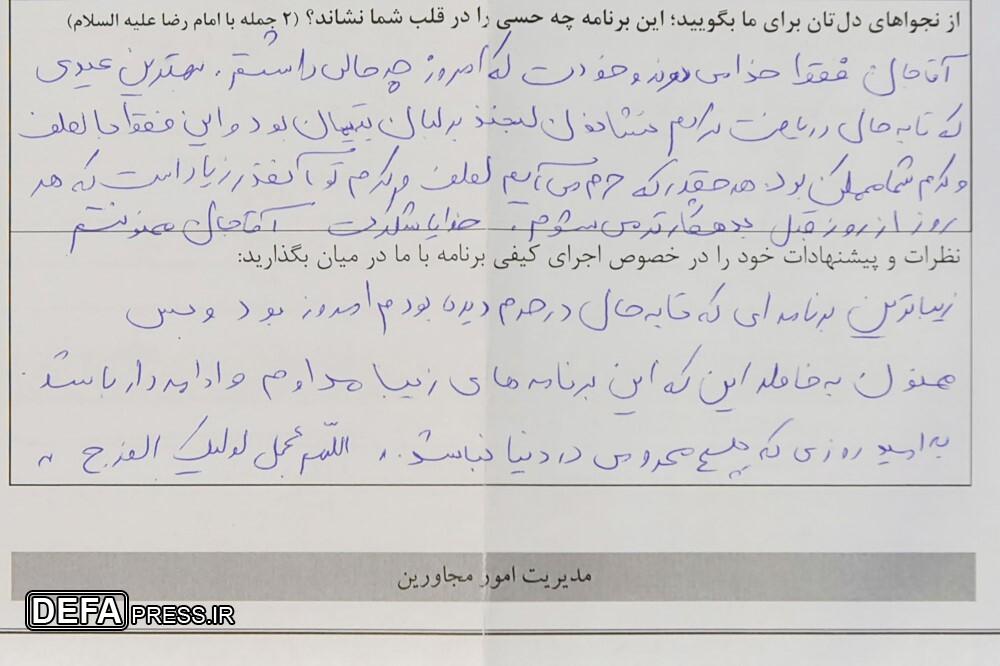 از نجواهای دل‌تان برای ما بگویید؛ این برنامه چه حسی را در قلب شما نشاند؟ (۲ جمله با امام رضا علیه السلام)
آقاجان فقط خدا می‌دونه و خودت که امروز چه حالی داشتم. بهترین عیدی
که تا به حال دریافت کردم نشاندن لبخند بر لبان یتیمان بود و این فقط با لطف
و کرم شما ممکن بود. هر چقدر که حرم می‌آیم لطف و کرم تو آنقدر زیاد است که هر
روز از روز قبل بدهکارتر می‌شوم. خدایا شکرت آقاجان ممنونتم
نظرات و پیشنهادات خود را در خصوص اجرای کیفی برنامه با ما در میان بگذارید:
زیباترین برنامه‌ای که تا به حال در حرم دیده بودم امروز بود و بس
ممنون به خاطر این که این برنامه‌های زیبا مداوم و ادامه‌دار باشد.
به امید روزی که هیچ محرومی در دنیا نباشد. اللهم عجل لولیک الفرج
مدیریت امور مجاورین
DEFAPRESS.IR